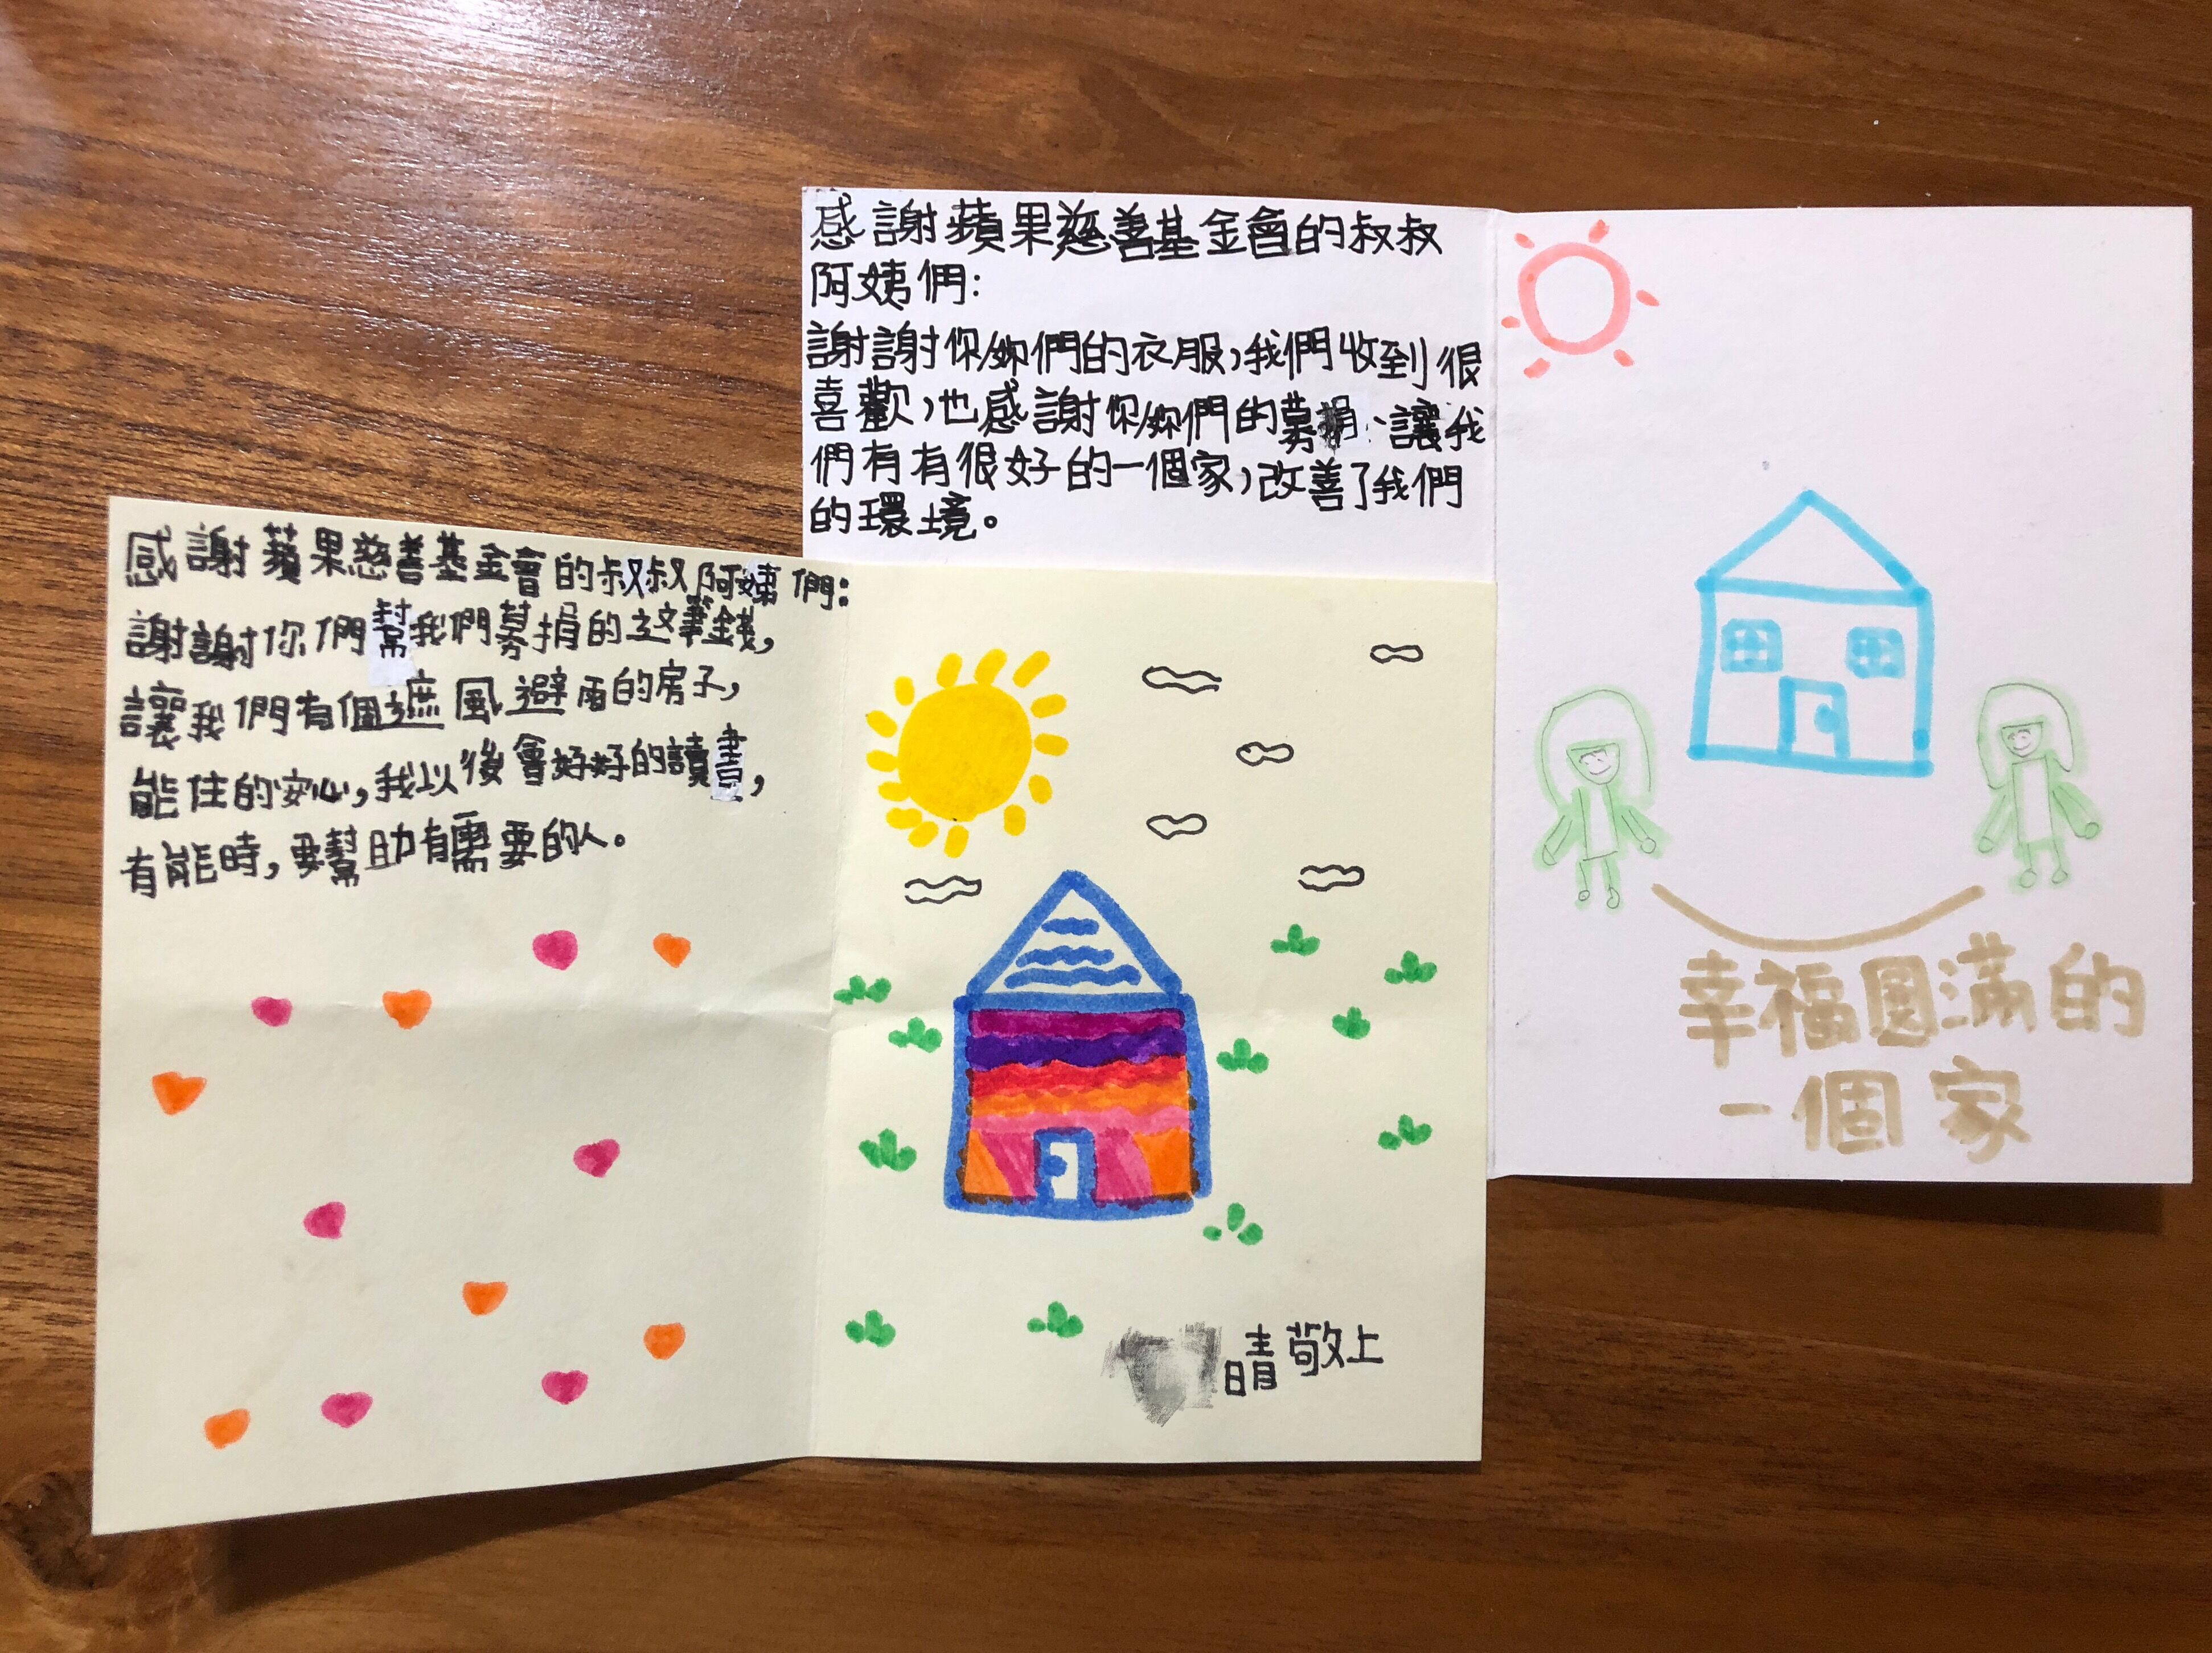 感謝蘋果慈善基金會的叔叔
阿姨們：
謝謝你妳們的衣服，我們收到很
喜歡，也感謝你妳們的募捐、讓我
們有有很好的一個家，改善了我們
的環境。
幸福圓滿的
一個家
感謝蘋果慈善基金會的叔叔阿姨們：
謝謝你們幫我們募捐的這筆錢，
讓我們有個遮風避雨的房子，
能住的安心，我以後會好好的讀書，
有能時，要幫助有需要的人。
晴敬上